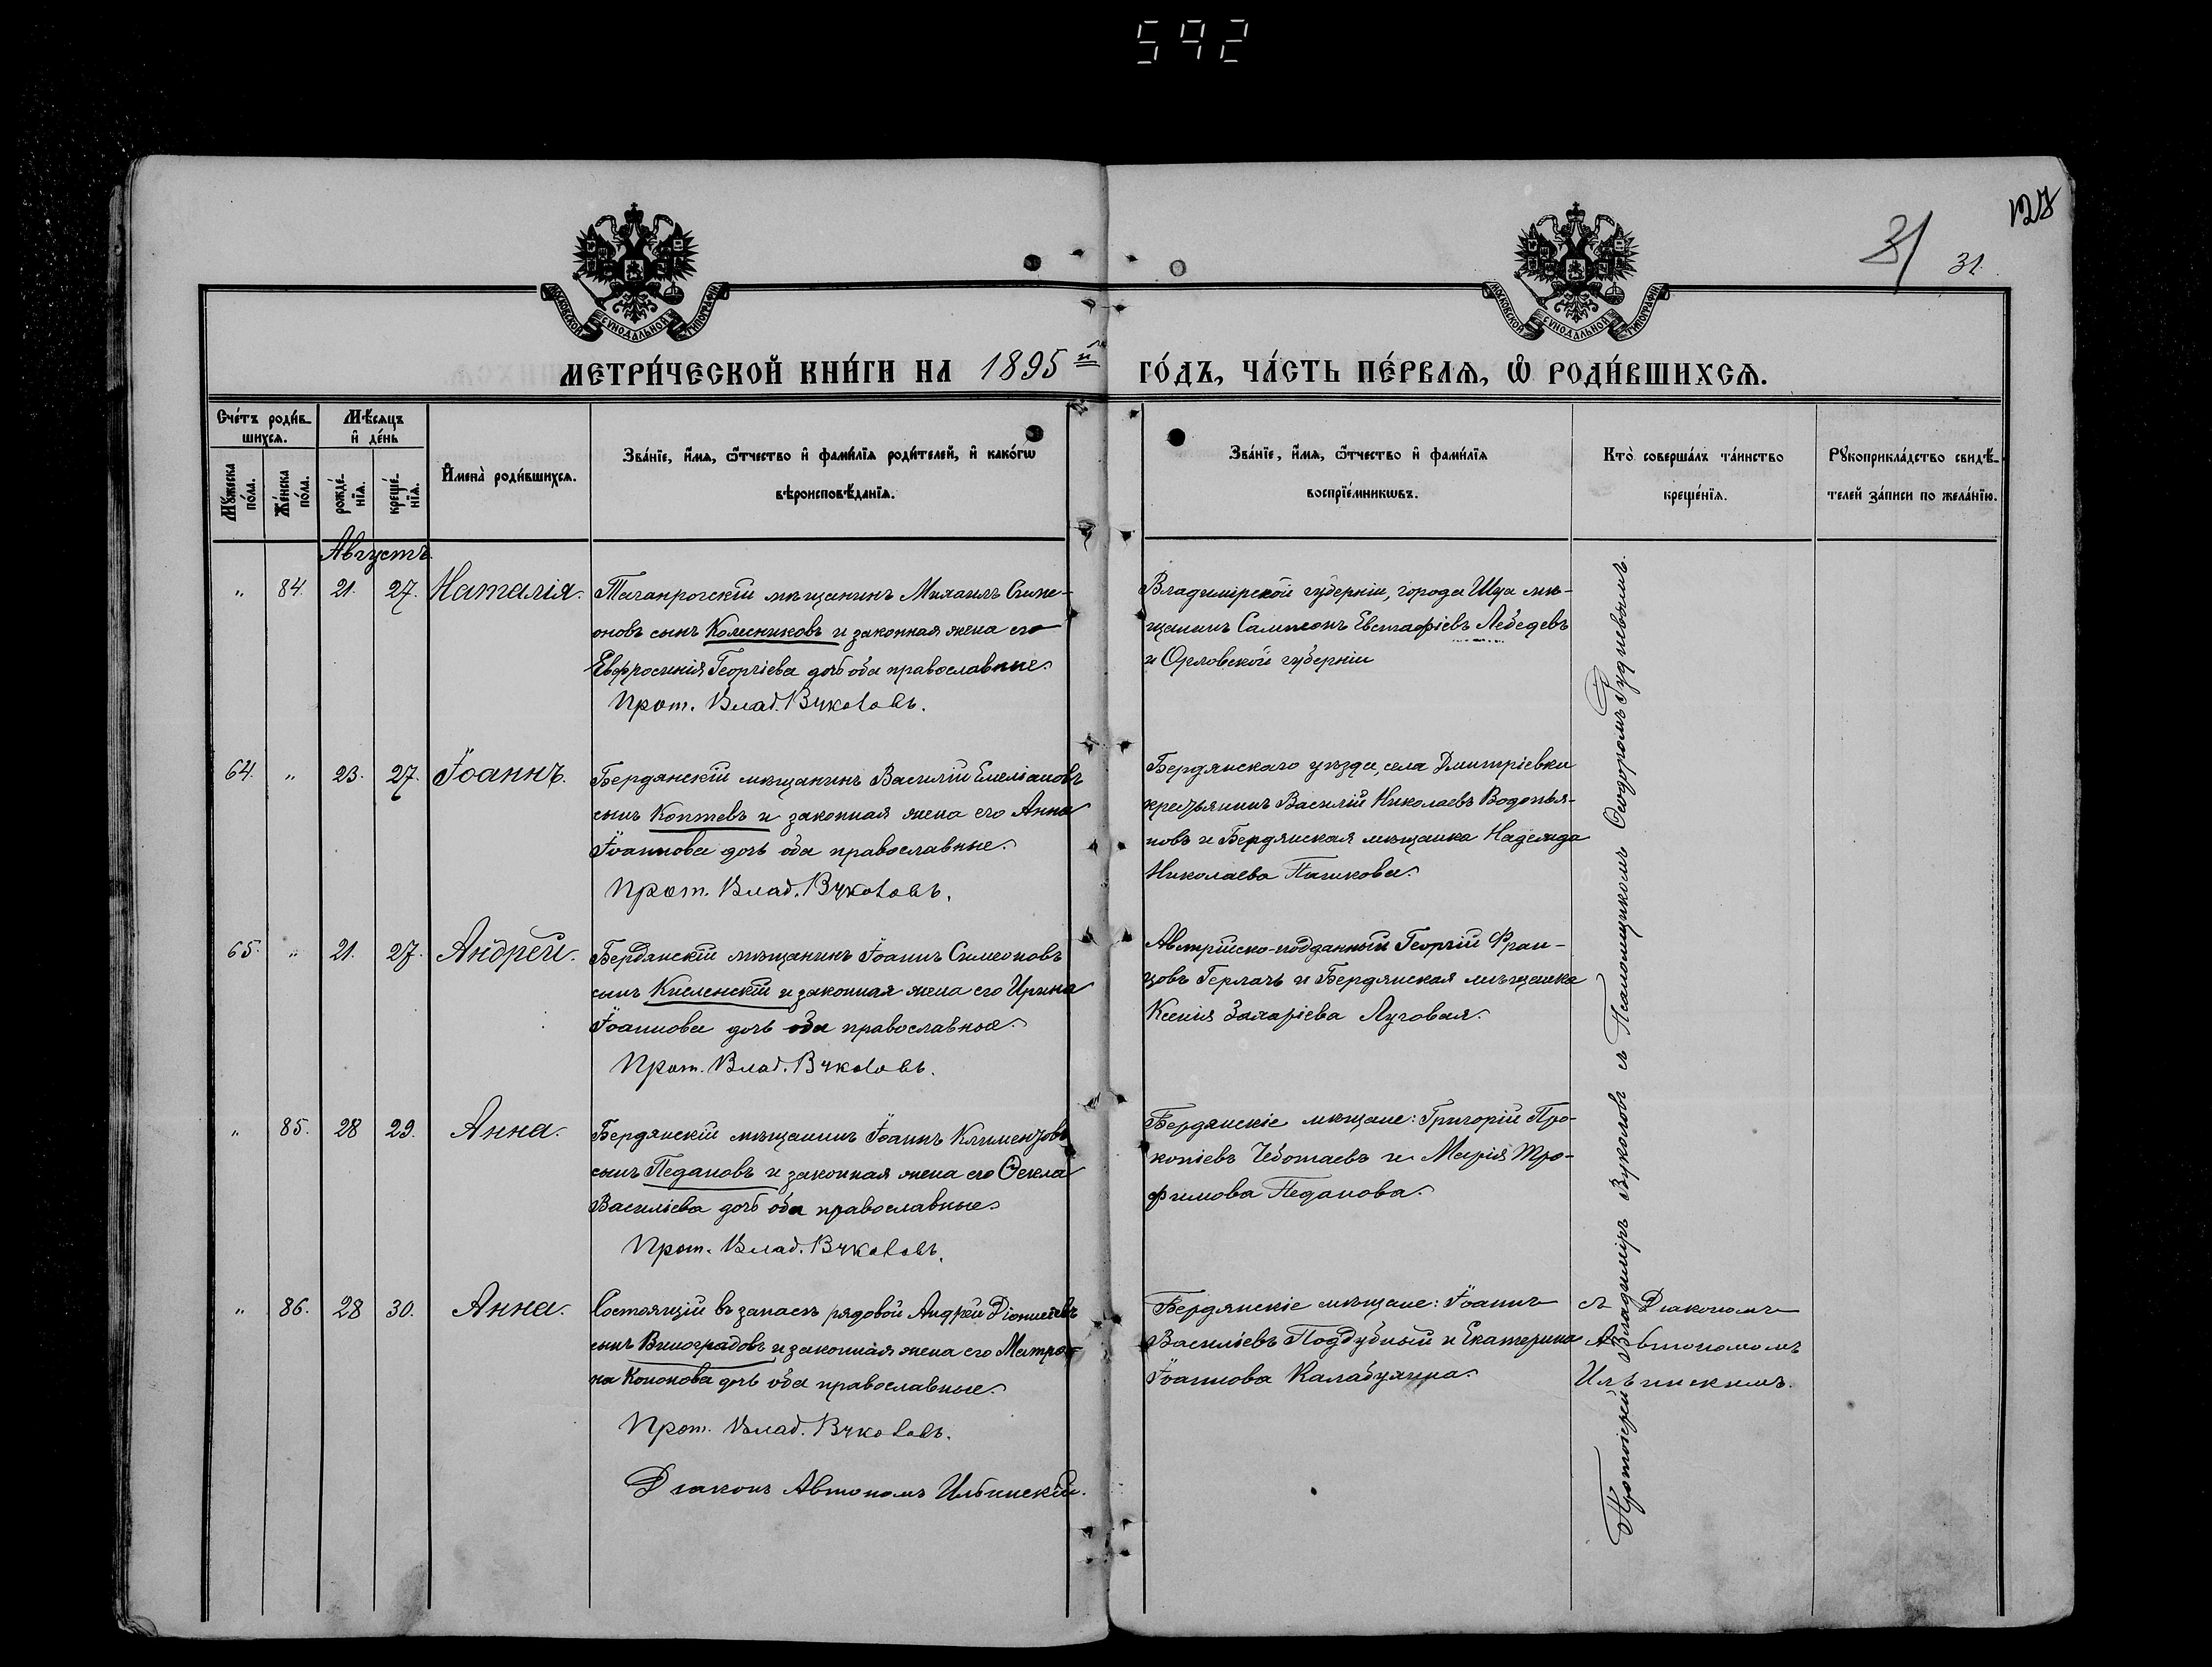 592
127
31
31.
МОСКОВСКОЙ СУНОДАЛЬНОЙ ТИПОГРАФІИ
МОСКОВСКОЙ СУНОДАЛЬНОЙ ТИПОГРАФІИ
МЕТРИ́ЧЕСКОЙ КНИ́ГИ НА 1895й ГО́ДЪ, ЧА́СТЬ ПЕ́РВАѦ, Ѡ РОДИ́ВШИХСѦ.
Сче́тъ роди́в-
шихсѧ.
Мꙋжеска по́ла.
Же́нска по́ла.
Мѣ́сѧцъ
и҆ де́нь
рожде́нїѧ.
креще́нїѧ.
И҆мена̀ роди́вшихсѧ.
Зва́нїе, и҆́мѧ, ѻ҆́тчество и҆ фами́лїѧ роди́телей, и҆ како́гѡ
вѣроисповѣ́данїѧ.
Зва́нїе, и҆́мѧ, ѻ҆́тчество и҆ фами́лїѧ
воспрїе́мникѡвъ.
Кто̀ соверша́лъ та́инство
креще́нїѧ.
Рꙋкоприкла́дство свидѣ́-
телей за́писи по жела́нїю.
Августъ.
" 84. 21. 27. Наталія.
Таганрогскій мѣщанинъ Михаилъ Симе-
оновъ сынъ Колесниковъ и законная жена его
Евфросинія Георгіева дочь оба православные.
Прот. Влад. Вуколовъ.
Владимірской губерніи, города Шуа мѣ-
щанинъ Сампсонъ Евстафіевъ Лебедевъ
и Орловской губерніи
64. " 23. 27. Іоаннъ.
Бердянскій мѣщанинъ Василій Емеліановъ
сынъ Коптевъ и законная жена его Анна
Іоаннова дочь оба православные.
Прот. Влад. Вуколовъ.
Бердянскаго уѣзда, села Дмитріевки
крестьянинъ Василій Николаевъ Водопья-
новъ и Бердянская мѣщанка Надежда
Николаева Пашкова.
65. " 21. 27. Андрей.
Бердянскій мѣщанинъ Іоаннъ Симеоновъ
сынъ Кисленскій и законная жена его Ирина
Іоаннова дочь оба православные.
Прот. Влад. Вуколовъ.
Австрійско-подданный Георгій Фран-
цовъ Герлачъ и Бердянская мѣщанка
Ксенія Захаріева Луговая.
" 85. 28 29. Анна.
Бердянскій мѣщанинъ Іоаннъ Климентовъ
сынъ Педановъ и законная жена его Ѳекла
Василіева дочь оба православные.
Прот. Влад. Вуколовъ.
Бердянскіе мѣщане: Григорій Про-
копіевъ Чеботаевъ и Марія Тро-
фимова Педанова.
" 86. 28 30. Анна.
Состоящій въ запасѣ рядовой Андрей Діонисіевъ
сынъ Виноградовъ и законная жена его Матро-
на Кононова дочь оба православные.
Прот. Влад. Вуколовъ.
Діаконъ Автономъ Ильинскій.
Бердянскіе мѣщане: Іоаннъ
Василіевъ Поддубный и Екатерина
Іоаннова
съ Діакономъ
Автономомъ
Ильинскимъ.
Протоіерей Владиміръ Вуколовъ съ Псаломщикомъ Ѳеодоромъ